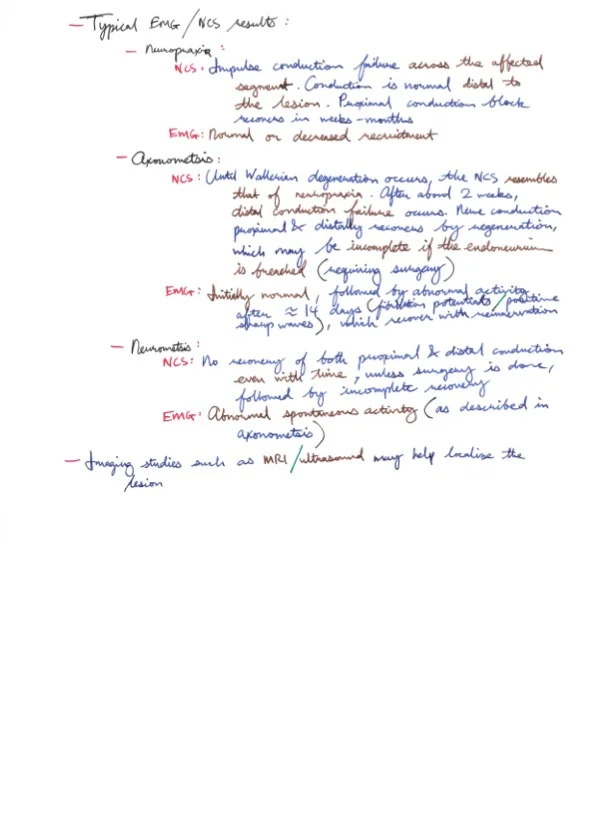 — Typical EMG/NCS results :
— Neuropraxia :
NCS : Impulse conduction failure across the affected
segment. Conduction is normal distal to
the lesion. Proximal conduction block
recovers in weeks-months
EMG : Normal or decreased recruitment
— Axonometsis :
NCS : Until Wallerian degeneration occurs, the NCS resembles
that of neuropraxia. After about 2 weeks,
distal conduction failure occurs. Nerve conduction
proximal & distally recovers by regeneration,
which may be incomplete if the endoneurium
is breached (requiring surgery)
EMG : Initially normal, followed by abnormal activity
after ≈ 14 days (fibrillation potentials/positive
sharp waves), which recover with reinnervation
— Neurometsis :
NCS : No recovery of both proximal & distal conduction
even with time, unless surgery is done,
followed by incomplete recovery
EMG : Abnormal spontaneous activity (as described in
axonometsis)
— Imaging studies such as MRI/ultrasound may help localise the
lesion